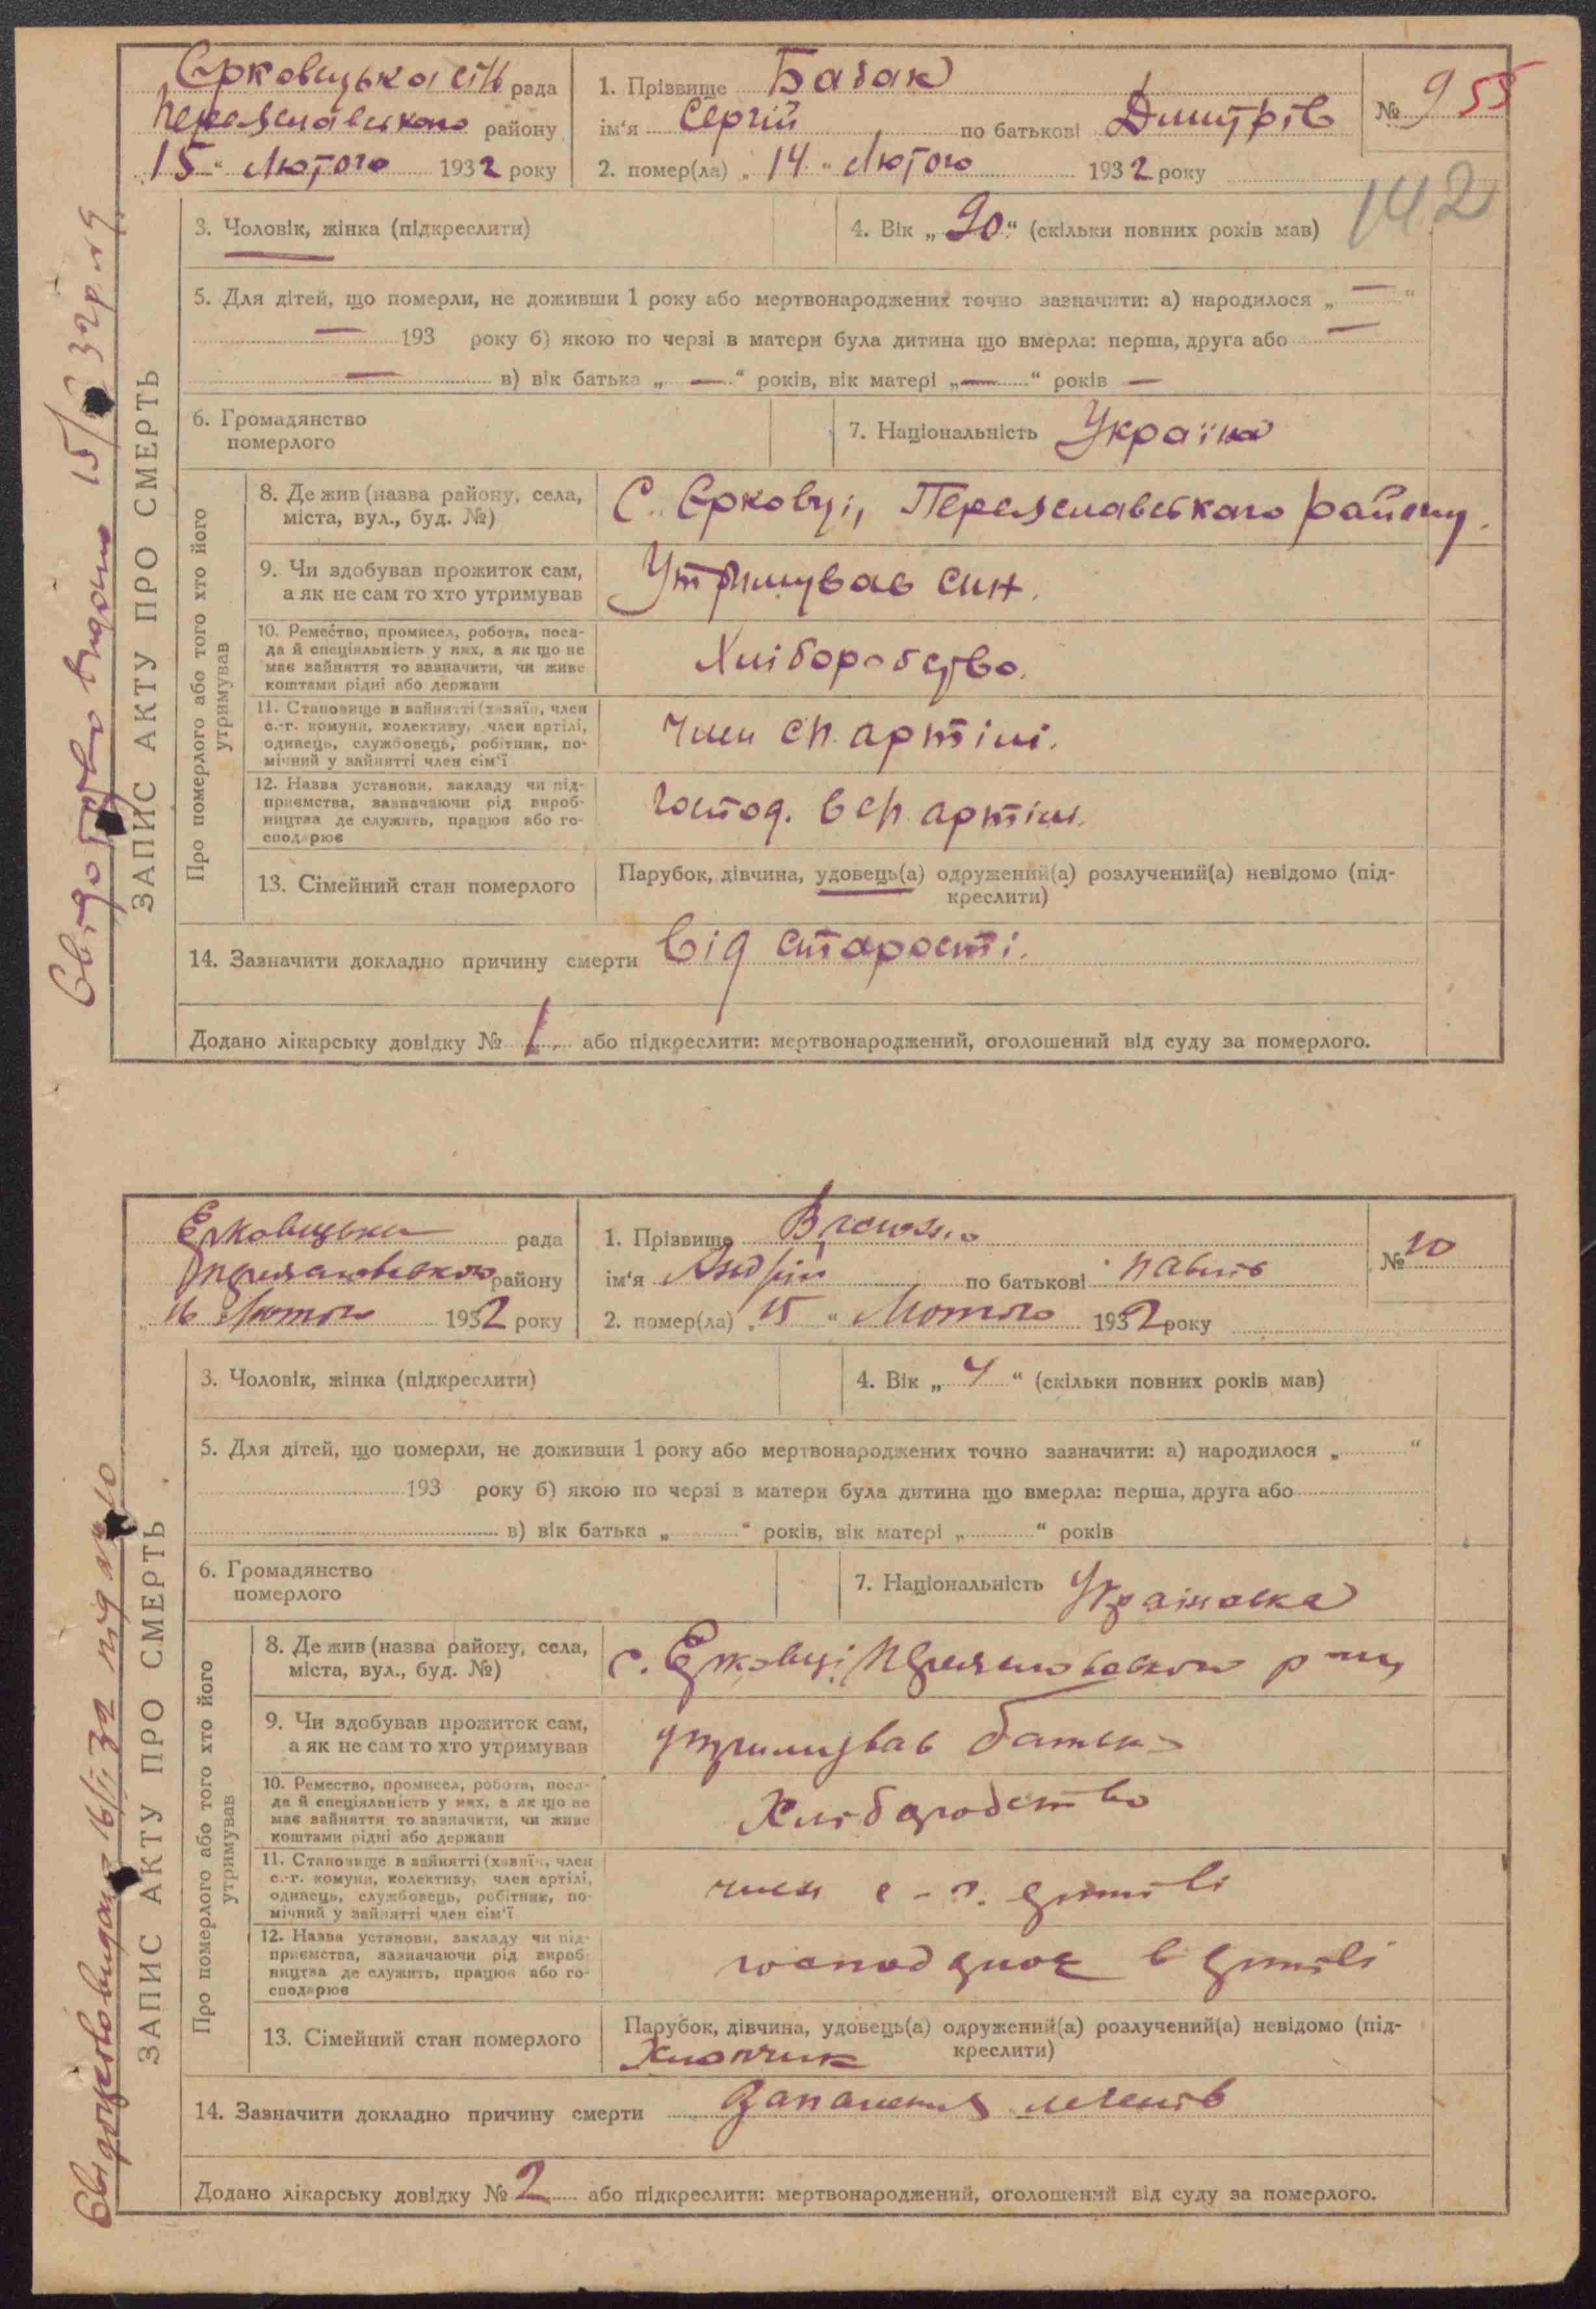 Єрковецька с/р рада
Переяславського району
„15“ Лютого 1932 року
1. Прізвище Базак
ім'я Сергій по батькові Дмитрів
2. помер(ла) „14“ Лютого 1932 року
№ 9 55
142
3. Чоловік, жінка (підкреслити)
4. Вік „90“ (скільки повних років мав)
5. Для дітей, що померли, не доживши 1 року або мертвонароджених точно зазначити: а) народилося „—“
— 193 року б) якою по черзі в матери була дитина що вмерла: перша, друга або —
— в) вік батька „—“ років, вік матері „—“ років —
6. Громадянство
померлого
7. Національність Україна
ЗАПИС АКТУ ПРО СМЕРТЬ
Про померлого або того хто його
утримував
8. Де жив (назва району, села,
міста, вул., буд. №)
С. Єрковці, Переяславського району.
9. Чи здобував прожиток сам,
а як не сам то хто утримував
Утримував син.
10. Ремество, промисел, робота, поса-
да й спеціяльність у них, а як що не
має зайняття то зазначити, чи живе
коштами рідні або держави
Хліборобство.
11. Становище в зайнятті (хазяїн, член
с.-г. комуни, колективу, член артілі,
одинець, службовець, робітник, по-
мічний у зайнятті член сім'ї
член сг. артілі.
12. Назва установи, закладу чи під-
приємства, зазначаючи рід вироб-
ництва де служить, працює або го-
сподарює
господ. в сг. артілі.
13. Сімейний стан померлого
Парубок, дівчина, удовець(а) одружений(а) розлучений(а) невідомо (під-
креслити)
14. Зазначити докладно причину смерти від старості.
Додано лікарську довідку № 1 або підкреслити: мертвонароджений, оголошений від суду за померлого.
Єрковецька рада
Переяславського району
„16 Лютого 1932 року
1. Прізвище
ім'я Андрій по батькові Павлів
2. помер(ла) „15“ Лютого 1932 року
№ 10
3. Чоловік, жінка (підкреслити)
4. Вік „4“ (скільки повних років мав)
5. Для дітей, що померли, не доживши 1 року або мертвонароджених точно зазначити: а) народилося „ “
193 року б) якою по черзі в матери була дитина що вмерла: перша, друга або
в) вік батька „ “ років, вік матері „ “ років
6. Громадянство
померлого
7. Національність Українська
Свідоцтво видано 16/II 32 під № 10
ЗАПИС АКТУ ПРО СМЕРТЬ
Про померлого або того хто його
утримував
8. Де жив (назва району, села,
міста, вул., буд. №)
с. Єрковці Переяславського р-ну
9. Чи здобував прожиток сам,
а як не сам то хто утримував
утримував батько
10. Ремество, промисел, робота, поса-
да й спеціяльність у них, а як що не
має зайняття то зазначити, чи живе
коштами рідні або держави
Хліборобство
11. Становище в зайнятті (хазяїн, член
с.-г. комуни, колективу, член артілі,
одинець, службовець, робітник, по-
мічний у зайнятті член сім'ї
член с-г. артілі
12. Назва установи, закладу чи під-
приємства, зазначаючи рід вироб-
ництва де служить, працює або го-
сподарює
господарює в артілі
13. Сімейний стан померлого
Парубок, дівчина, удовець(а) одружений(а) розлучений(а) невідомо (під-
креслити)
Хлопчик
14. Зазначити докладно причину смерти Запалення легенів
Додано лікарську довідку № 2 або підкреслити: мертвонароджений, оголошений від суду за померлого.